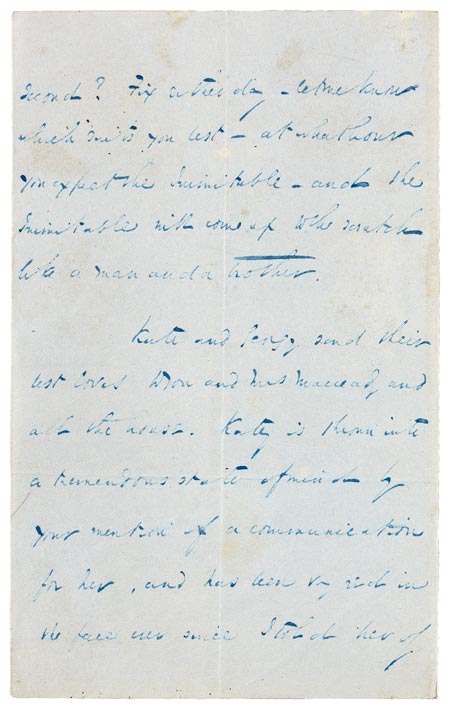 second? Fix either day – let me know
which suits you best – at what hour
you expect the Inimitable – and the
Inimitable will come up to the scratch
like a man and a brother.
Kate and Georgy send their
best loves to you and Mrs Macready and
all the house. Katey is thrown into
a tremendous state of mind by
your mention of a communication
for her, and has been very red in
the face ever since I told her of